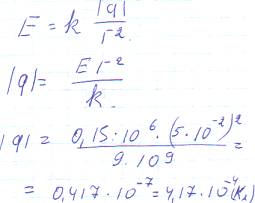 E = k |q| / r².
|q| = E r² / k.
|q| = 0,15·10⁶·(5·10⁻²)² / 9·109 =
= 0,417·10⁻⁷ = 4,17·10⁻⁴(Кл)